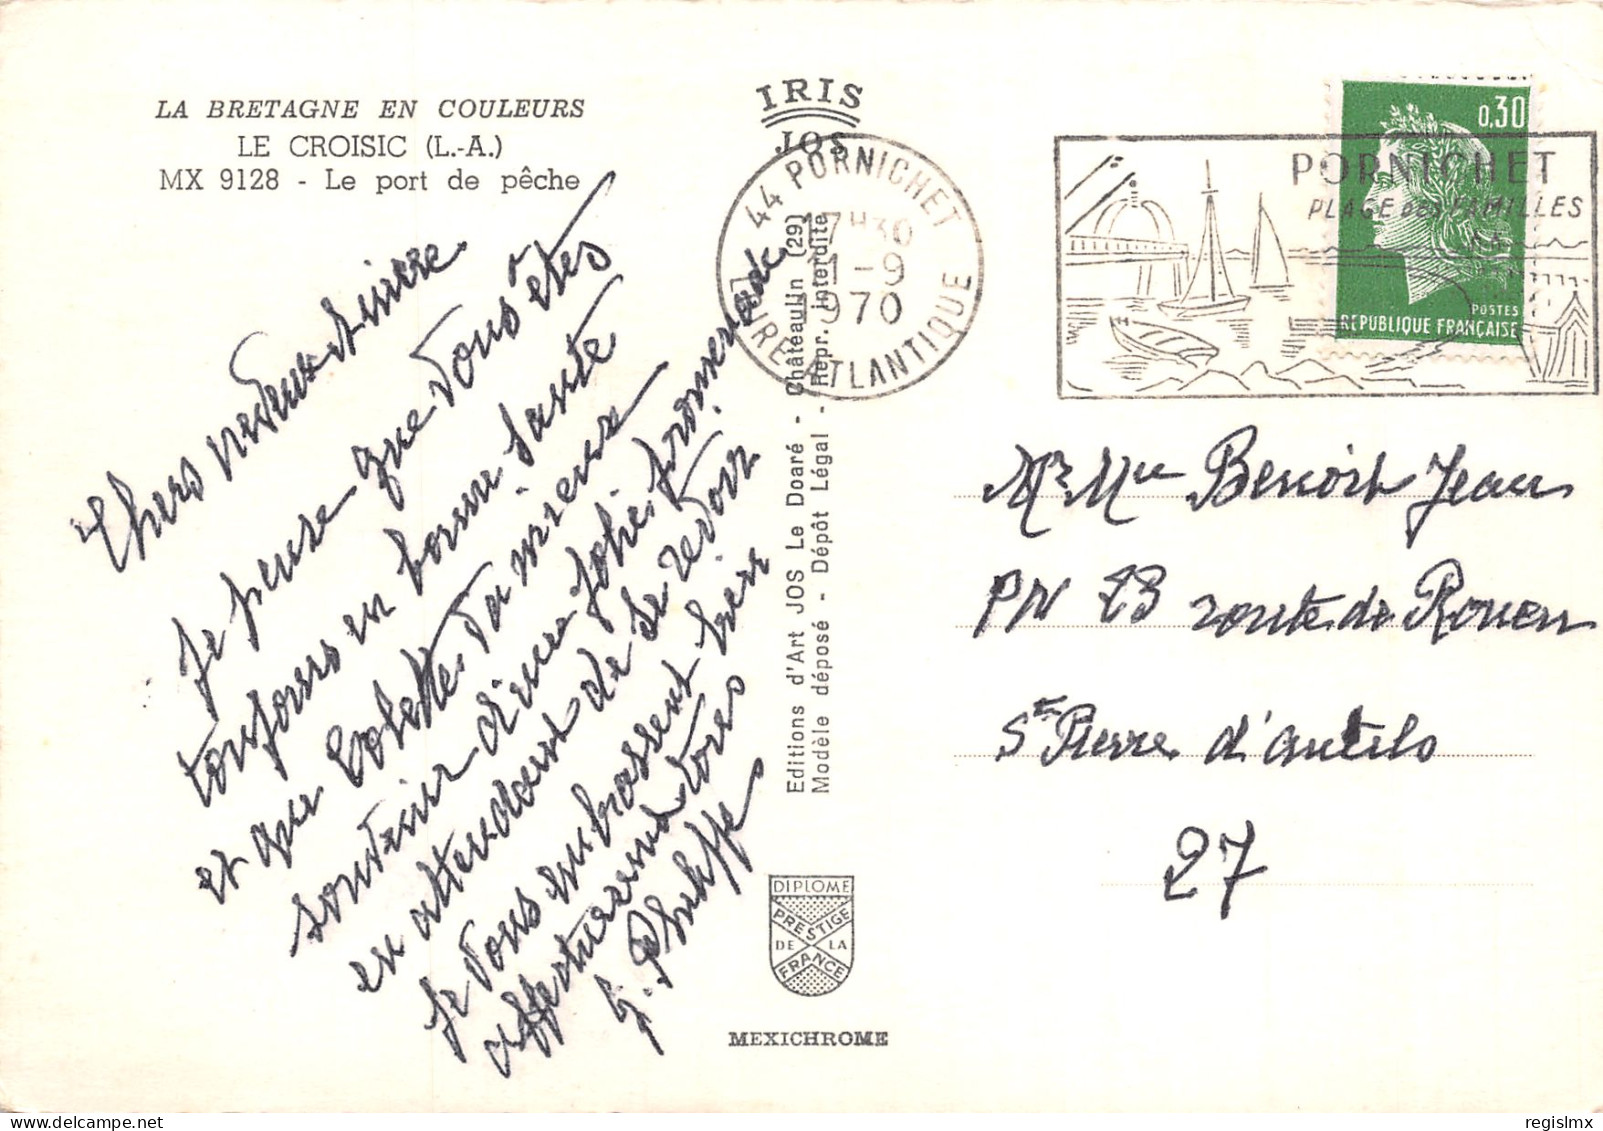 LA BRETAGNE EN COULEURS
LE CROISIC (L.-A.)
MX 9128 - Le port de pêche
Chers neveux
Je pense que vous êtes
toujours en bonne santé
et que Colette va mieux
souvenir d'une jolie promenade
en attendant de se revoir
Je vous embrassent bien
affectueument tous
G. Philippe
IRIS
JOS
44 PORNICHET
17H30
11-9
1970
LOIRE ATLANTIQUE
Editions d'Art JOS Le Doaré - Châteaulin (29)
Modèle déposé - Dépôt Légal - Repr. interdite
DIPLOME
PRESTIGE
DE LA
FRANCE
MEXICHROME
PORNICHET
PLAGE DES FAMILLES
0,30
POSTES
REPUBLIQUE FRANÇAISE
Mr Mme Benoist Jean
PN 23 route de Rouen
St Pierre d'autils
27
regislmx